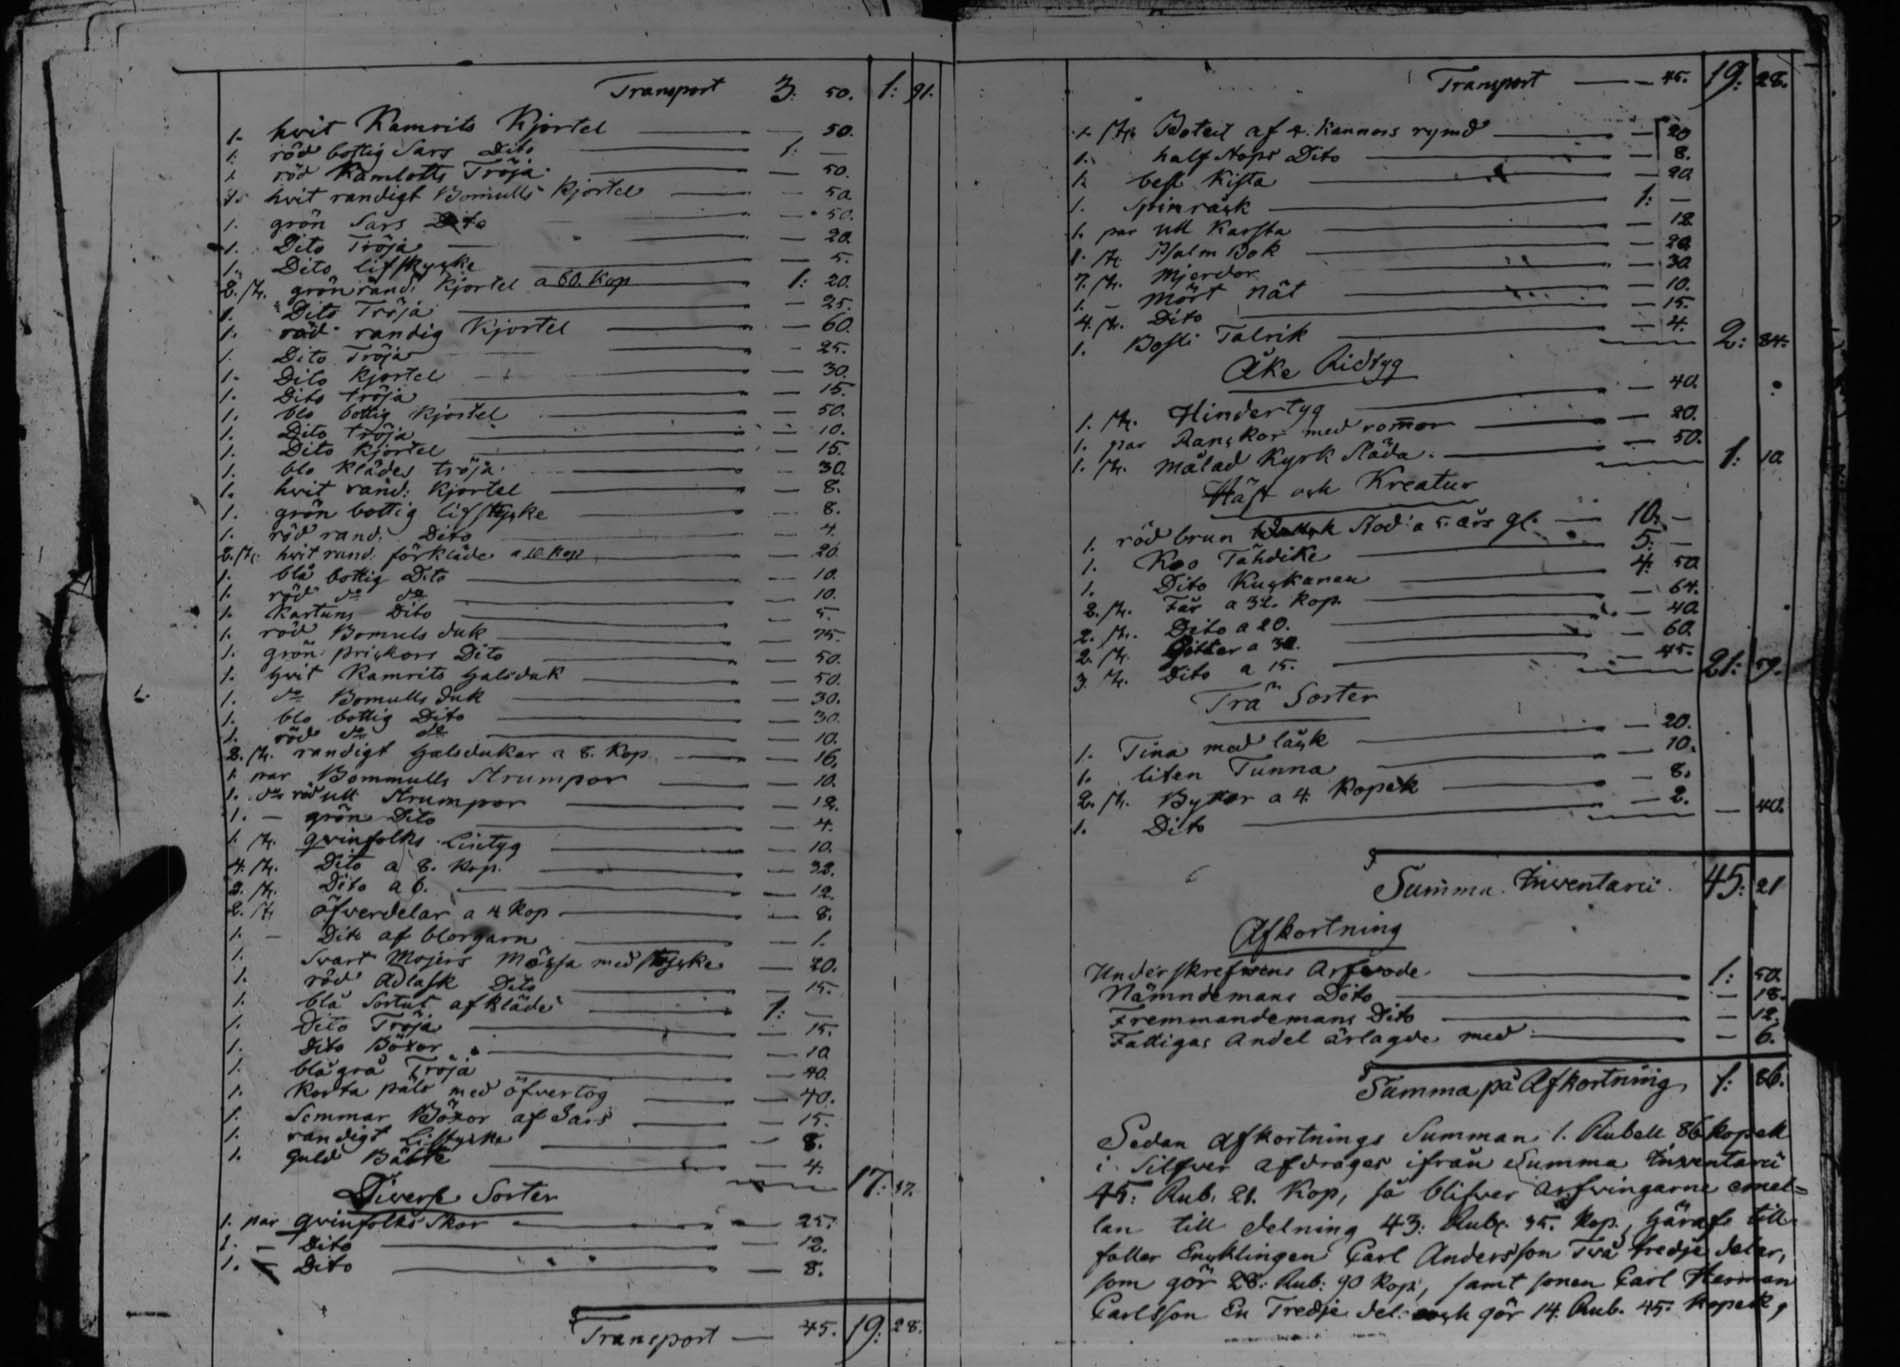 Transport 3: 50. 1: 91.
1. hvit Kamrits Kjortel — 50.
1. röd bottig Sars Dito 1: —
1. röd Kamlotts Tröja — 50.
1. hvit randigt Bomulls Kjortel — 50
1. grön Sars Dito — 50.
1. Dito Tröja — 20.
1. Dito lifstycke — 5.
2. st. grön rand: Kjortel a 60. Kop 1: 20.
1. Dito Tröja — 25.
1. röd randig Kjortel — 60.
1. Dito Tröja — 25.
1. Dito Kjortel — 30.
1. Dito tröja — 15.
1. blo bottig Kjortel — 50.
1. Dito tröja — 10.
1. Dito Kjortel — 15.
1. blo klädes tröja — 30.
1. hvit rand: Kjortel — 8.
1. grön bottig lifstycke — 8.
1. röd rand: Dito — 4.
2. st. hvit rand. förkläde a 10 Kop — 20.
1. blå bottig Dito — 10.
1. röd do do — 10.
1. Kartuns Dito — 5.
1. röd Bomuls duk — 75.
1. grön prickors Dito — 50.
1. hvit Kamrits halsduk — 50.
1. do Bomulls duk — 30.
1. blo bottig Dito — 30.
1. röd do do — 10.
2. st. randigt halsdukar a 8. Kop — 16.
1. par Bommulls Strumpor — 10.
1. do röd ull Strumpor — 12.
1. — grön Dito — 4.
1. st. qvinfolks Lintyg — 10.
4. st. Dito a 8. Kop. — 32.
2. st. Dito a 6. — 12.
2. st. öfverdelar a 4 Kop — 8.
1. — Dito af blorgarn — 1.
1. Svart Mojers Mössa med stycke — 20.
1. röd Adlask Dito — 15.
1. blå Sortut af kläde 1: —
1. Dito Tröja — 15.
1. Dito Böxor — 10
1. blå grå Tröja — 40.
1. Korta päls med öfvertog — 40.
1. Sommar Böxor af Sars — 15.
1. randigt Lifstycke — 8.
1. Guld Bälte — 4. 17: 37.
Diverse Sorter
1. par qvinfolks Skor — 25.
1. — Dito — 12.
1. — Dito — 8.
Transport — 45. 19: 28.
Transport — 45. 19: 28.
1. st. Botell af 4. Kannors rymd — 20
1. half Stops Dito — 8.
1. besl. Kista — 20
1. Spinråck 1: —
1. par ull Karsta — 12
1. st. Psalm Bok — 20.
7. st. Mjerdor — 30
1. — Mört Nät — 10.
4. st. Dito — 15.
1. Bosli Talrik — 4. 2: 84.
Åke Ridtyg
1. st. Hindertyg — 40.
1. par Ranckor med rom̄or — 20.
1. st. målad Kyrk Släda. — 50. 1: 10.
Häst och Kreatur
1. röd brun Stod a 5. års gl. — 10. —
1. Koo Tähdike — 5: —
1. Dito Kuckanen — 4: 50
2. st. Får a 32. Kop. — 64.
2. st. Dito a 20. — 40
2. st. Getter a 30. — 60.
3. st. Dito a 15. — 45. 21: 59.
Trä Sorter
1. Tina med låck — 20.
1. liten Tunna — 10.
2. st. Byttor a 4. Kopek — 8.
1. Dito — 2. — 40.
Summa Inventarii. 45: 21
Afkortning
Underskrefvens Arfvode — 1: 50.
Nämndemans Dito — 18.
Fremmandemans Dito — 12.
Fattigas Andel ärlagde med — 6.
Summa på Afkortning 1: 86.
Sedan afkortnings Summan 1. Rubell 86 kopek
i Silfver afdrages ifrån Summa Inventarii
45: Rub. 21. Kop, så blifver arfvingarne emel=
lan till delning 43: Rub. 35. Kop, häraf till
faller Encklingen Carl Andersson Två tredje delar,
som gör 28: Rub: 90 Kop, samt sonen Carl Herman
Carlsson En Tredje del: och gör 14. Rub. 45. Kopek,